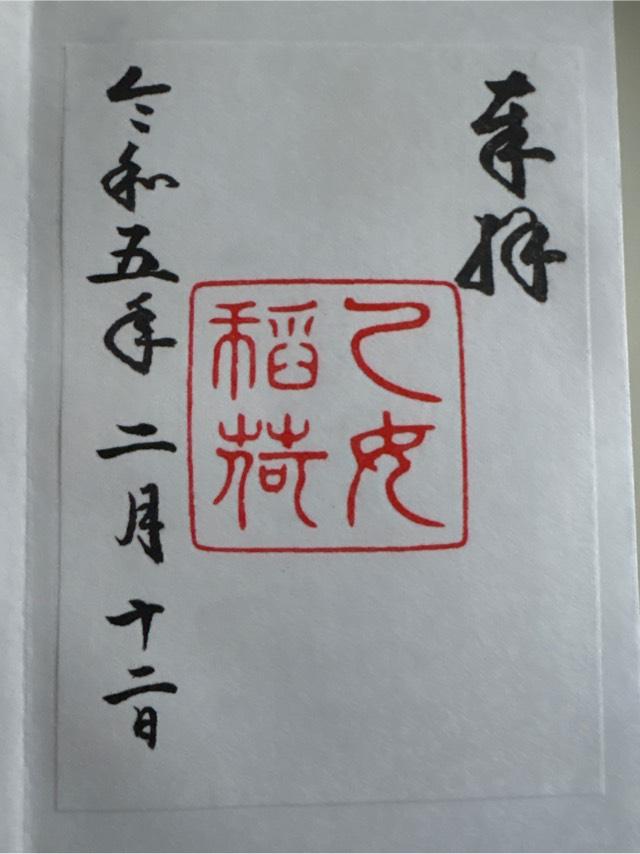 奉拝
乙女
稲荷
令和五年二月十二日